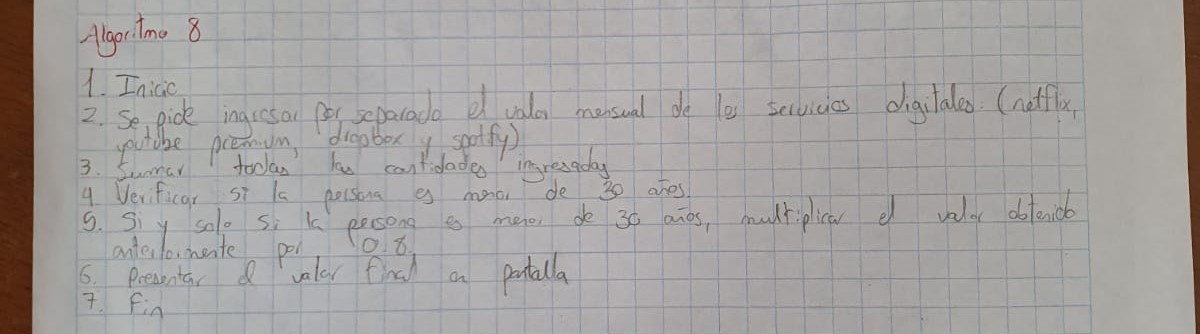 Algoritmo 8
1. Inicio
2. Se pide ingresar por separado el valor mensual de los servicios digitales. (netflix,
youtube premium, dropbox y spotify)
3. Sumar todas las cantidades ingresadas
4 Verificar si la persona es menor de 30 años.
5. Si y solo si la persona es menor de 30 años, multiplicar el valor obtenido
anteriormente por 0.8.
6. Presentar el valor final en pantalla
7. Fin